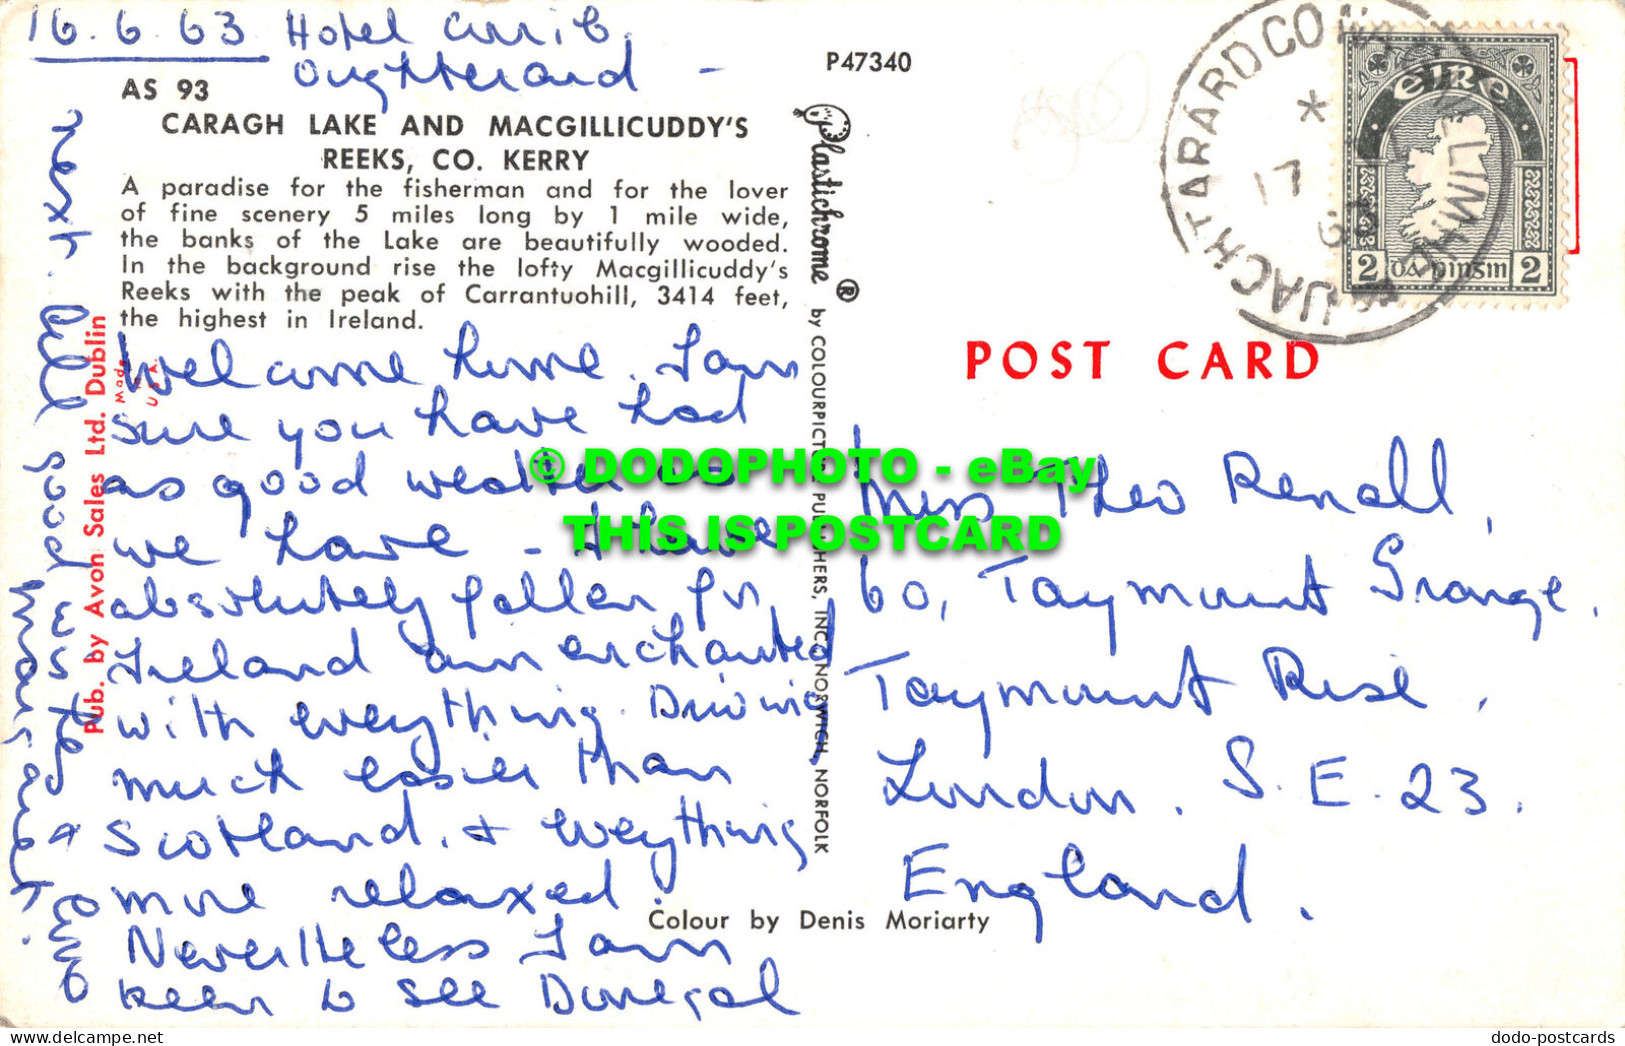 16.6.63 Hotel Corrib,
Oughterard -
AS 93
CARAGH LAKE AND MACGILLICUDDY'S
REEKS, CO. KERRY
A paradise for the fisherman and for the lover
of fine scenery 5 miles long by 1 mile wide,
the banks of the Lake are beautifully wooded.
In the background rise the lofty Macgillicuddy's
Reeks with the peak of Carrantuohill, 3414 feet,
the highest in Ireland.
Welcome home. I am
sure you have had
as good weather as
we have - I have
absolutely fallen for
Ireland am enchanted
with everything. Driving
much easier than
Scotland. & everything
more relaxed.
Nevertheless I am
keen to see Donegal
next. All good wishes
Margaret.
Pub. by Avon Sales Ltd. Dublin
Made
U.S.A.
P47340
Plastichrome ®
by COLOURPICTURE PUBLISHERS, INC., NORWICH, NORFOLK
Colour by Denis Moriarty
POST CARD
Miss Theo Renall,
60, Taymount Grange,
Taymount Rise,
London. S.E.23.
England.
© DODOPHOTO - eBay
THIS IS POSTCARD
UACHTARARD CO
17
63
éire
2 2
dodo-postcards